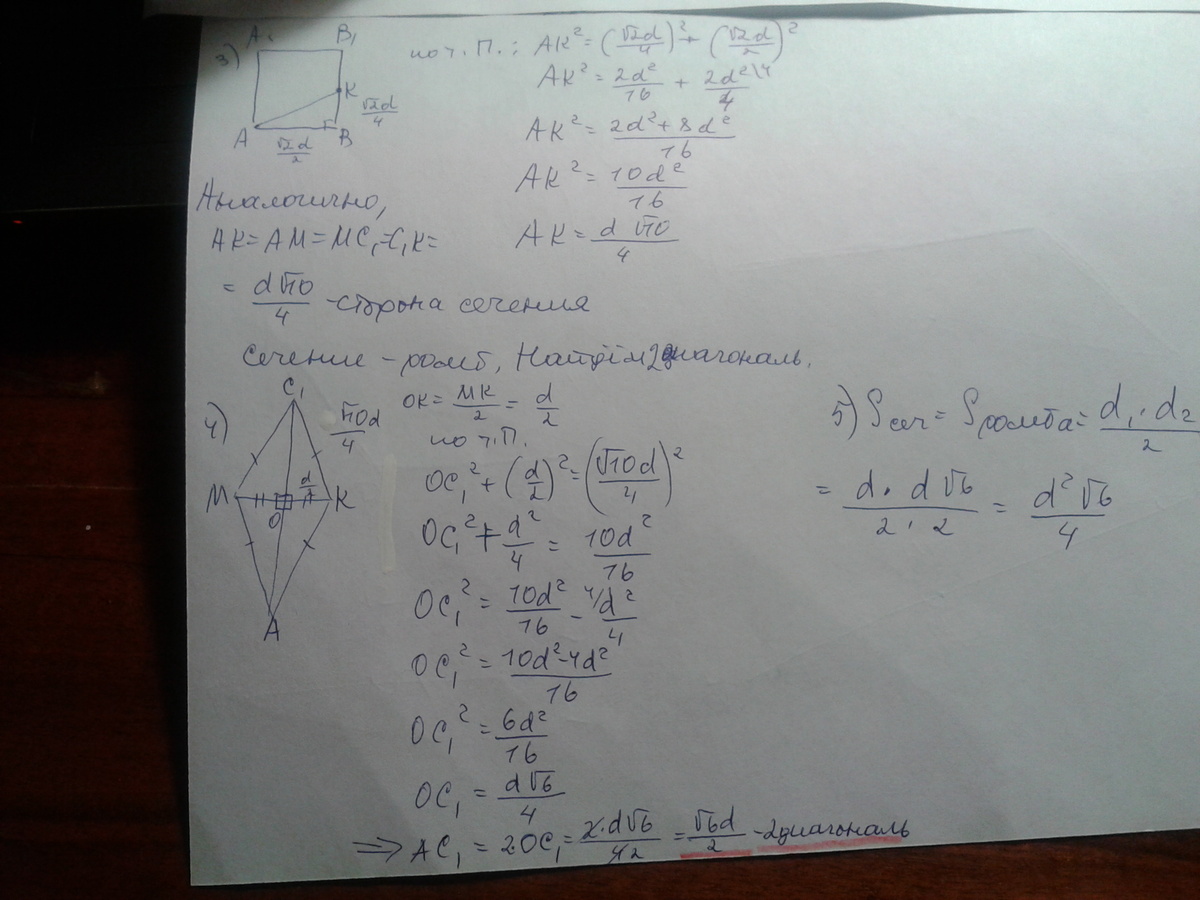 3)
A₁ B₁
K
√2d/4
A B
√2d/2
по т. П.: AK² = (√2d/4)² + (√2d/2)²
AK² = 2d²/16 + 2d²\4/4
AK² = (2d²+8d²)/16
AK² = 10d²/16
AK = d√10/4
Аналогично,
AK = AM = MC₁ = C₁K =
= d√10/4 - сторона сечения
Сечение - ромб, Найдём 2 диагональ.
4)
C₁
√10d/4
M K
O
A
OK = MK/2 = d/2
по т. П.
OC₁² + (d/2)² = (√10d/4)²
OC₁² + d²/4 = 10d²/16
OC₁² = 10d²/16 - 4/d²/4
OC₁² = (10d²-4d²)/16
OC₁² = 6d²/16
OC₁ = d√6/4
⇒ AC₁ = 2OC₁ = 2·d√6/42 = √6d/2 - 2 диагональ
5) Sсеч = Sромба = d₁·d₂/2
= d·d√6/2·2 = d²√6/4